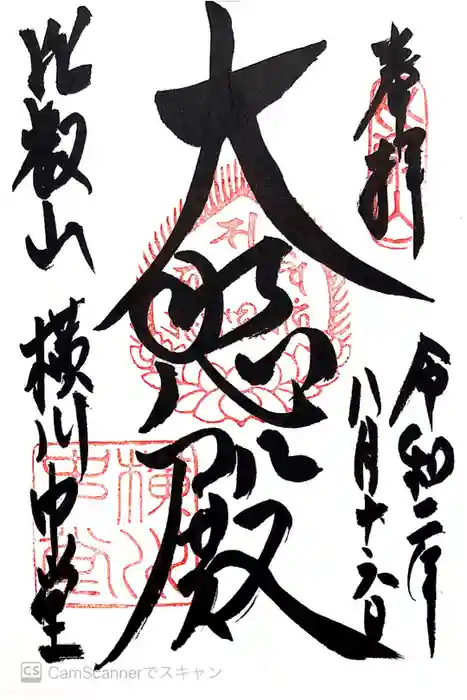 奉拝
令和二年
八月十六日
大悲殿
比叡山
横川中堂
横川
中堂
CS CamScannerでスキャン